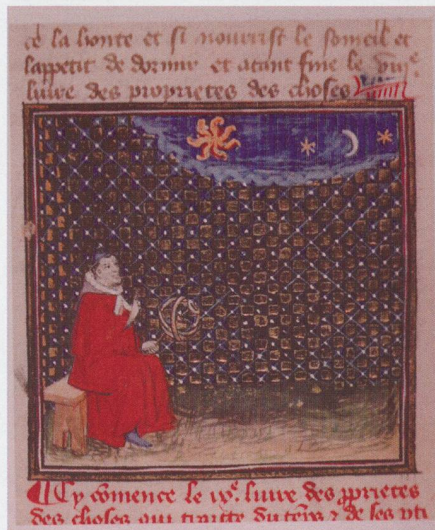 de la honte et si nourrist le someil et
lappetit de dormir et atant fine le viiie
livre des proprietes des choses
Cy comence le ixe livre des pprietes
des choses qui traitte du tems & de ses pti